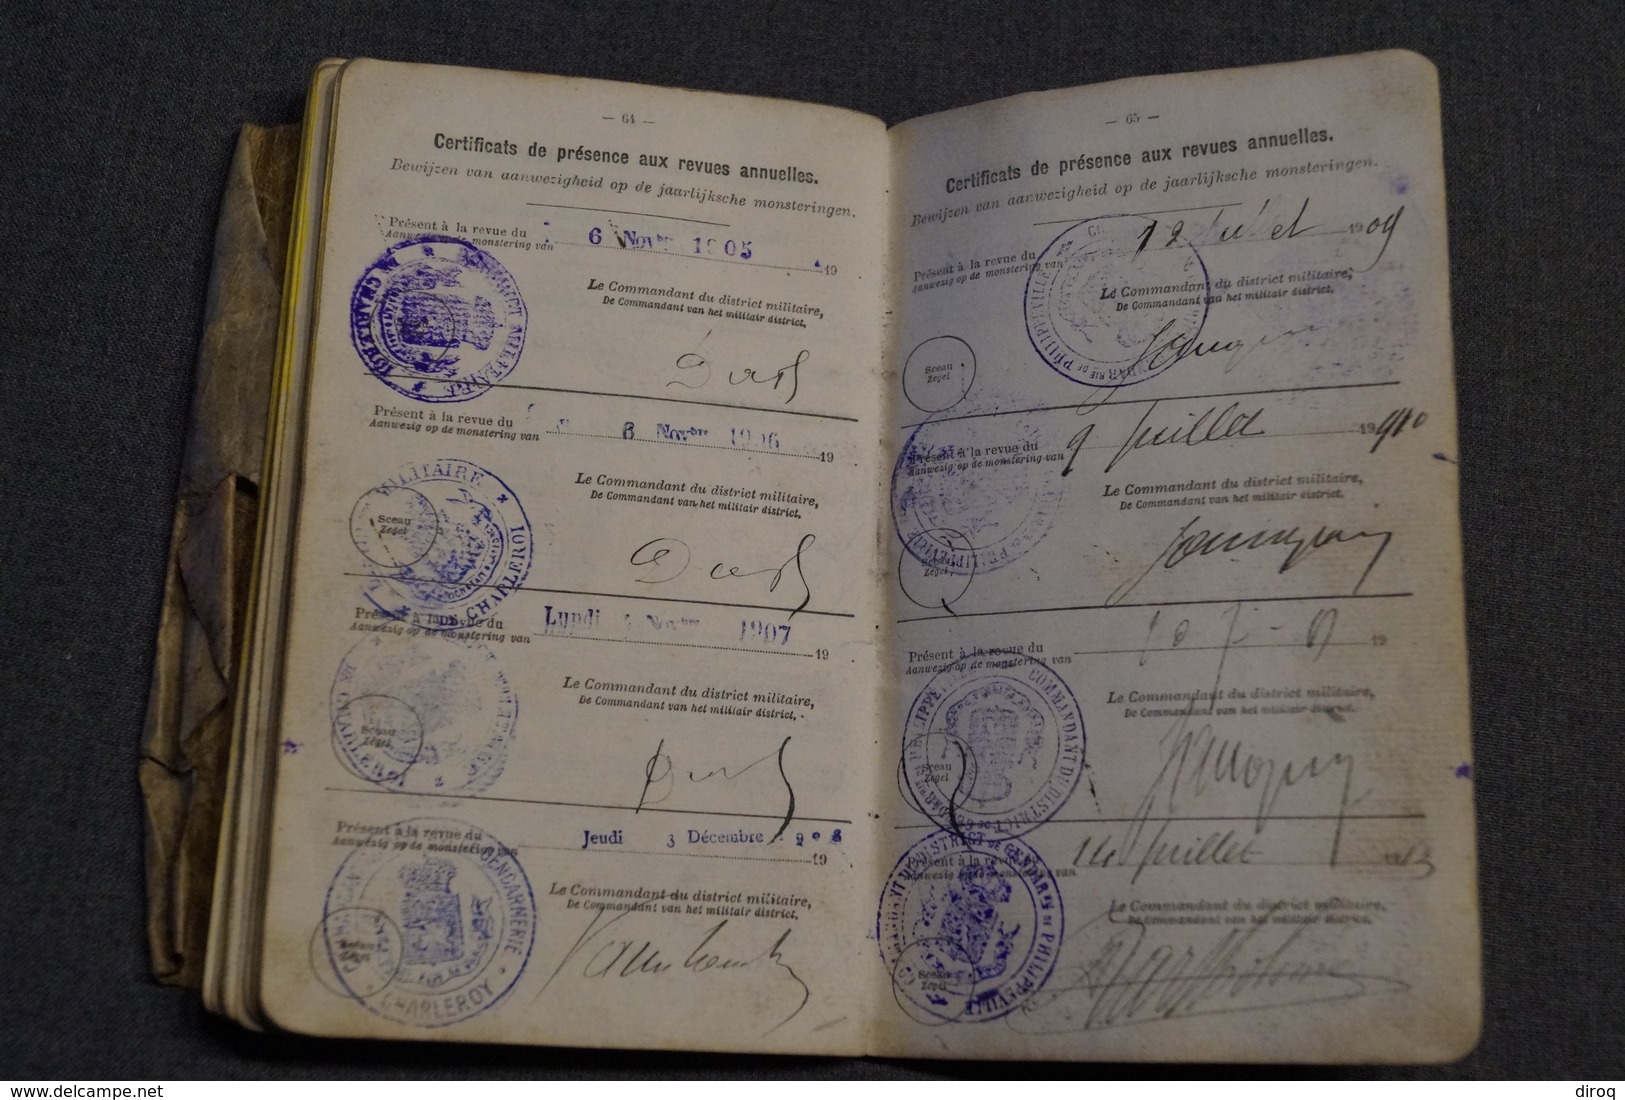 — 64 —
Certificats de présence aux revues annuelles.
Bewijzen van aanwezigheid op de jaarlijksche monsteringen.
Présent à la revue du 6 Novbre 1905
Aanwezig op de monstering van 19
Le Commandant du district militaire,
De Commandant van het militair district,
CHARLEROI
Présent à la revue du 6 Novbre 1906
Aanwezig op de monstering van 19
Le Commandant du district militaire,
De Commandant van het militair district,
Sceau
Zegel
MILITAIRE
CHARLEROI
Présent à la revue du Lundi Novbre 1907
Aanwezig op de monstering van 19
Le Commandant du district militaire,
De Commandant van het militair district,
Sceau
Zegel
Présent à la revue du Jeudi 3 Décembre
Aanwezig op de monstering van 19
Le Commandant du district militaire,
De Commandant van het militair district,
Sceau
Zegel
GENDARMERIE
CHARLEROY
— 65 —
Certificats de présence aux revues annuelles.
Bewijzen van aanwezigheid op de jaarlijksche monsteringen.
Présent à la revue du 12 Juillet 1909
Aanwezig op de monstering van
Le Commandant du district militaire,
De Commandant van het militair district,
Sceau
Zegel
Présent à la revue du 9 Juillet 1910
Aanwezig op de monstering van
Le Commandant du district militaire,
De Commandant van het militair district,
Sceau
Zegel
Présent à la revue du 19
Aanwezig op de monstering van
Le Commandant du district militaire,
De Commandant van het militair district,
Sceau
Zegel
COMMANDANT DU DISTRICT DE
Présent à la revue du 14 Juillet
Aanwezig op de monstering van
Le Commandant du district militaire,
De Commandant van het militair district,
Sceau
Zegel
DISTRICT DE GENDARMERIE DE PHILIPPEVILLE
diroq